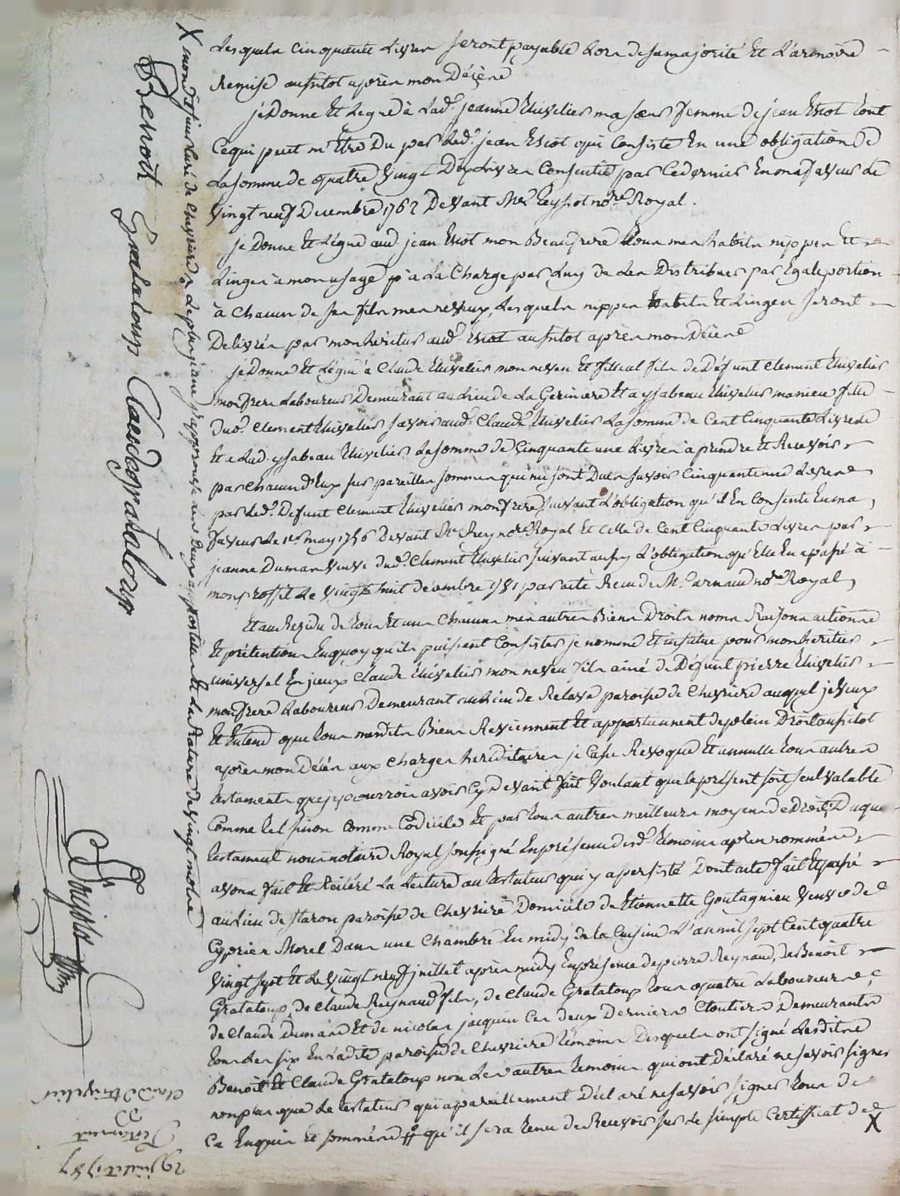 Lesquels cinquante Livres seront payable Lors de sa majorité Et L'armoire
Remise aussitot après mon Décéd
je Donne Et Legue à Lad. jeanne femme de jean tout
Ce qui peut m'Etre Du par Led. jean qui Consiste En une obligation de
La somme de quatre Vingt Dix Livres Consentie par Ce dernier En ma faveur Le
Vingt neuf Decembre 1762 Devant Me Peyssot nore Royal.
je Donne Et Légue aud jean mon Beaufrere Tous mes habits nippes Et
Linges à mon usage à La Charge par Luy de Les Distribuer par Egale portion
à Chacun de ses fils mes neveux Lesquels nippes habits Et Linges seront
Delivrés par mon héritier aud. aussitot après mon Décéd
je Donne Et Légue à Claude mon neveu Et filleul fils de Défunt Clement
mon frere Laboureur Demeurant au Lieu de La Et a ysabeau ma niece fille
dud. Clement savoir aud. Claude La somme de Cent Cinquante Livres
Et a Lad. ysabeau La somme de Cinquante une Livres à prendre Et Recevoir
par Chacun d'Eux sur pareilles sommes qui me sont Dues savoir Cinquante une Livres
par Led. Défunt Clement mon frere suivant L'obligation qu'il En Consentit En ma
faveur Le 1er may 1756 Devant Me Rey nore Royal Et Celle de Cent Cinquante Livres par
jeanne Dumas Veuve dud. Clement suivant aussy L'obligation qu'Elle En a passé à
mon proffit Le Vingt huit décembre par acte Recu de Me Parnaud nore Royal,
Et au Residu de Tous Et uns Chacuns mes autres Biens Droits noms Raisons actions
Et prétentions En quoy qu'ils puissent Consister je nomme Et institue pour mon héritier
universel En jceux Claude mon neveu fils ainé de Défunt pierre
mon frere Laboureur Demeurant au Lieu de Relave paroisse de Chevrieres auquel je Veux
Et Entend que Tous mesdits Biens Reviennent Et appartiennent de plein Droit aussitot
après mon Décéd aux Charges héréditaires je Casse Revoque Et annulle Tous autres
testaments que je pourrois avoir Cy Devant fait Voulant que le présent soit seul Valable
Comme tel sinon Comme Codicile Et par Tous autres meilleurs moyens de Droit, Duquel
testament nous notaire Royal soussigné En présence des témoins après nommés
avons fait Et Réitéré La Lecture au testateur qui y a persisté Dont acte fait Et passé
au Lieu de paroisse de Chevrieres Domicile de Etiennette Goutagnieu Veuve de
Cyprien Morel Dans une Chambre En midy de la Cuisine L'an mil sept Cent quatre
Vingt sept Et Le Vingt neuf juillet après midy En présence de pierre Reynaud, de Benoit
Grataloup, de Claude Reynaud fils, de Claude Grataloup Tous quatre Laboureurs
de Claude Dumas Et de nicolas jacquin Ces deux Derniers Cloutiers Demeurants
Tous Les six En Ladite paroisse de Chevrieres témoins Desquels ont signé Lesdits
Benoit Et Claude Grataloup non Les autres témoins qui ont Déclaré ne savoir signer
non plus que Le testateur qui a pareillement Déclaré ne savoir signer Tous de
Ce Enquis Et sommés qu'il sera tenu de Recevoir sur Le simple Certificat de X
X mond. sieur Curé de Chevrieres
Benoit Grataloup Claude grataloup
29 juillet 1787
Testament